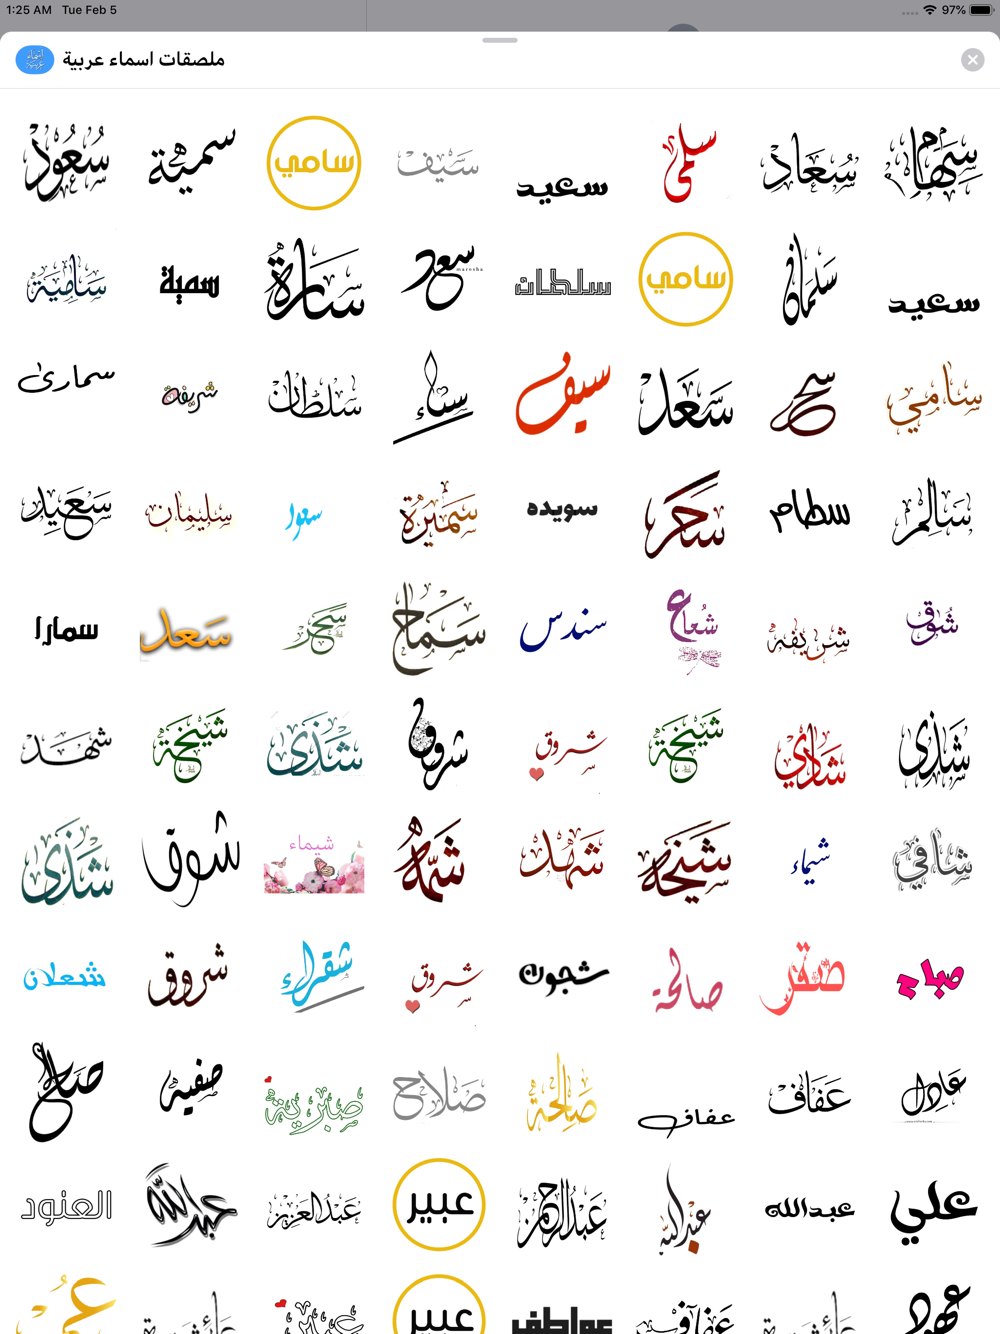 1:25 AM Tue Feb 5 97%
ملصقات اسماء عربية
سهام سعاد سلمى سعيد سيف سامي سمية سعود
سعيد سلمان سامي سلطان سعد سارة سمية سامية
سامي سحر سعد سيف سناء سلطان شريفة سمارى
سالم سطام سحر سويده سميرة سليمان سعيد
شوق شريفه شعاع سندس سماح سحر سعد سمارا
شذى شادي شيخة شروق شروق شذى شيخة شهد
شافي شيماء شيخه شهد شمه شيماء شوق شذى
صباح صقر صالحة شجون شروق شقراء شروق شعلان
عادل عفاف عفاف صالحة صلاح صبرية صفيه صالح
علي عبدالله عبدالله عبدالرحمن عبير عبدالعزيز عبدالله العنود
عهد عواطف عبير